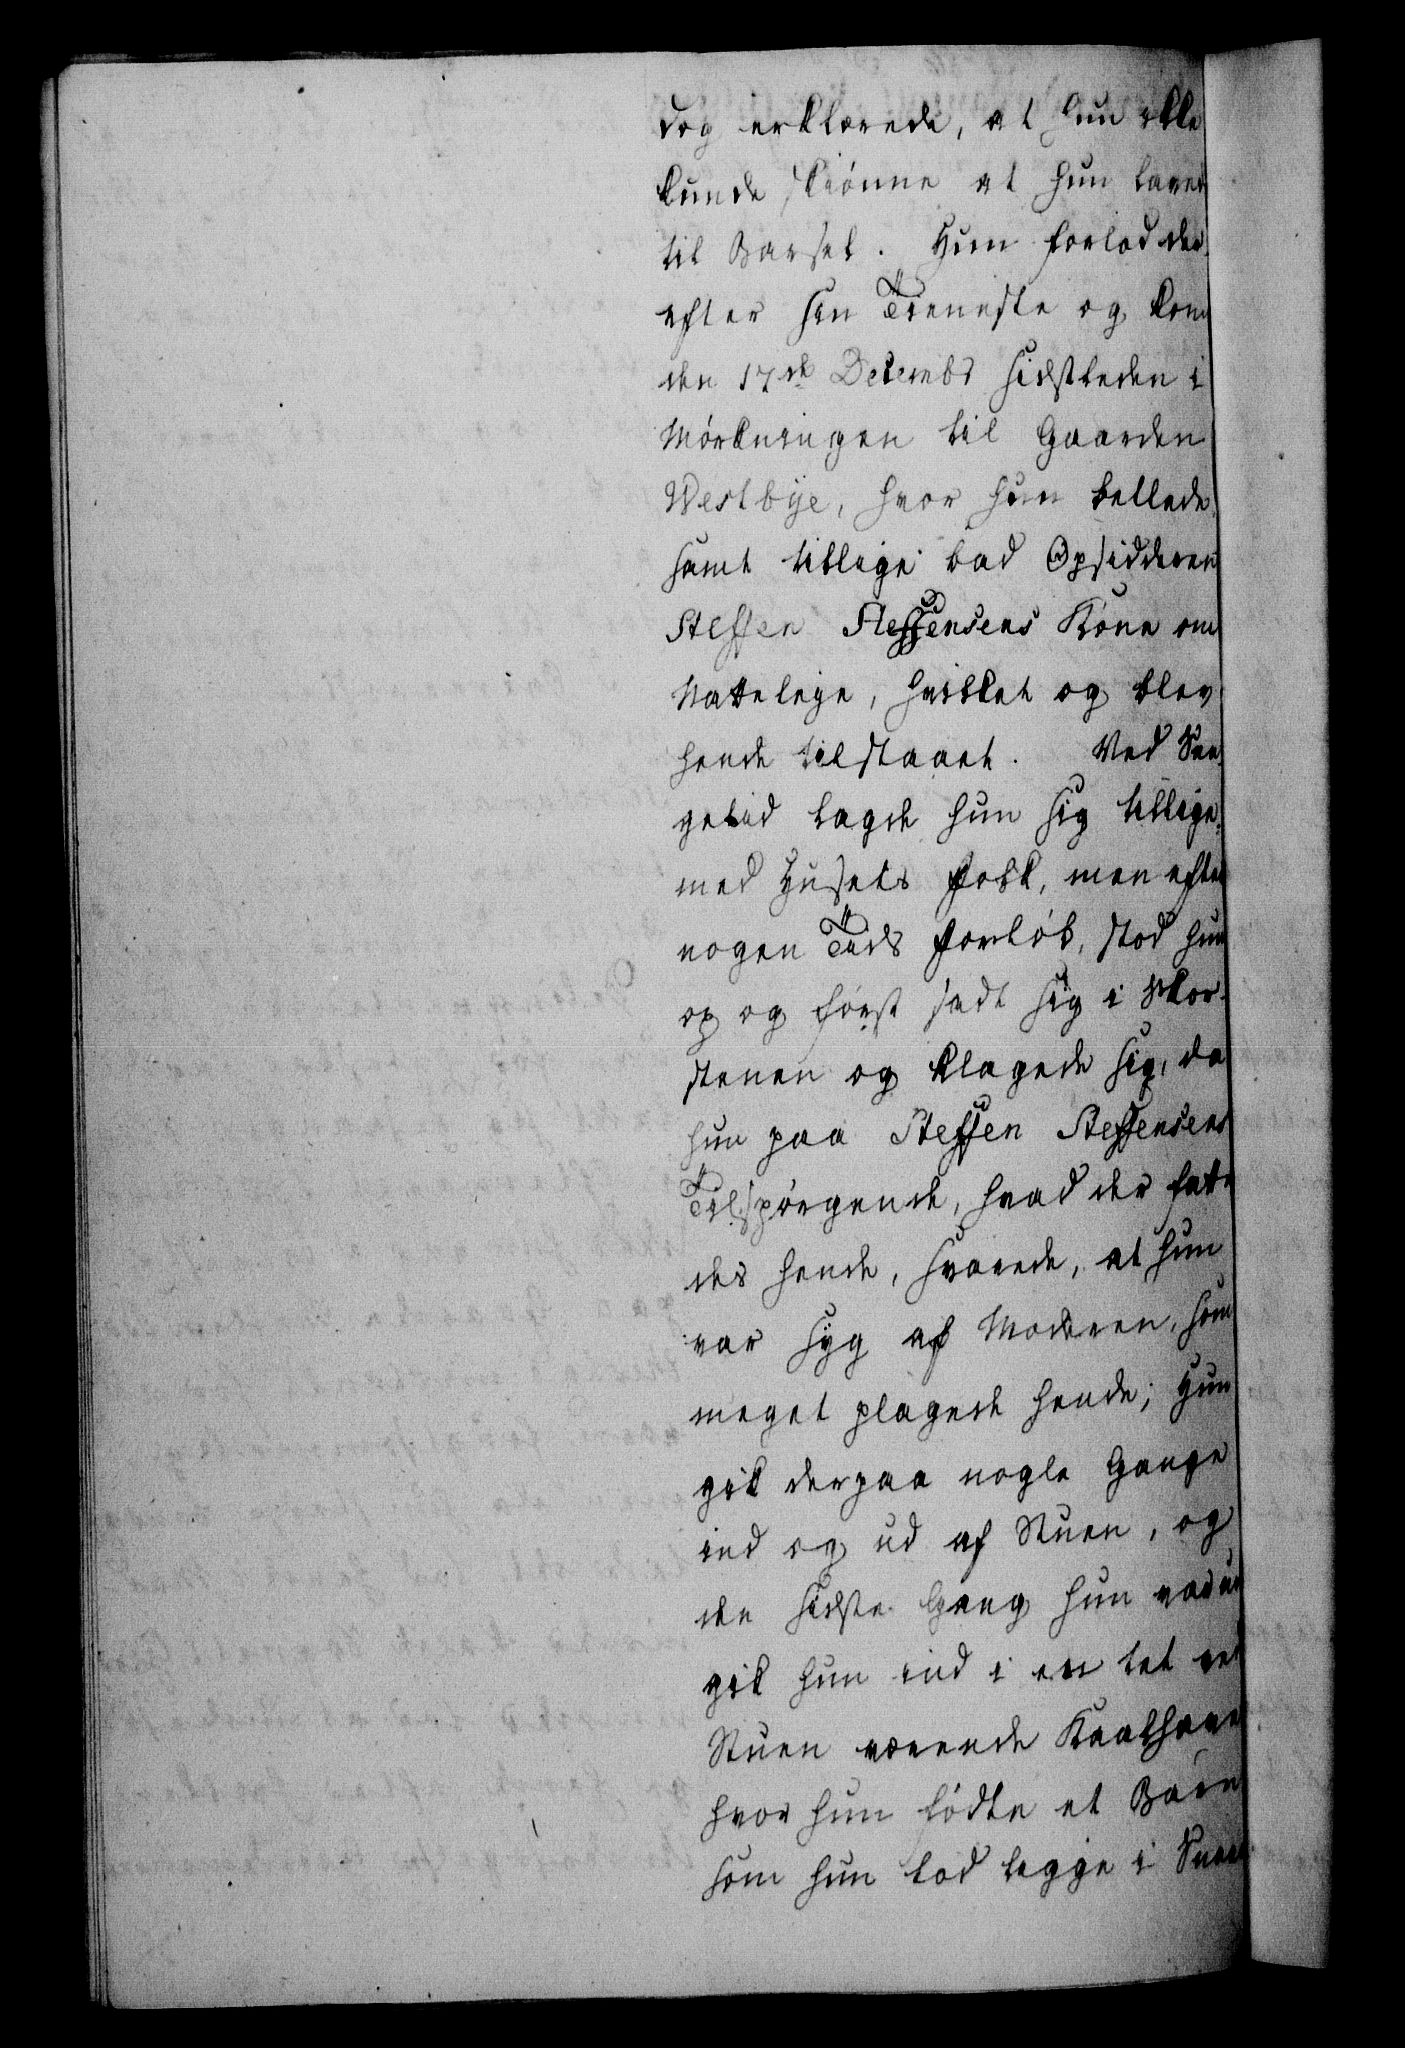 dog erklærede, at hun ikke
kunde skiønne at hun laved
til Barsel. Hun forlod der-
efter sin Tieneste og kom
den 17de Decembr sidstleden i
Mørkningen til Gaarden
Westbye, hvor hun betlede,
samt tillige bad Opsidderen
Steffen Steffensens Kone om
Natteleye, hvilket og blev
hende tilstaaet. Ved Sen-
getid lagde hun sig tillige-
med Husets Folk, men efter
nogen Tids Forløb, stod hun
op og først sadt sig i Skor-
stenen og klagede sig, da
hun paa Steffen Steffensens
Tilspørgende, hvad der fatte-
des hende, svarede, at hun
var syg af Moderen, som
meget plagede hende; Hun
gik derpaa nogle Gange
ind og ud af Stuen, og
den sidste Gang hun var ude
gik hun ind i en tet ved
Stuen værende Kaalhave
hvor hun fødte et Barn
som hun lod legge i Sneen